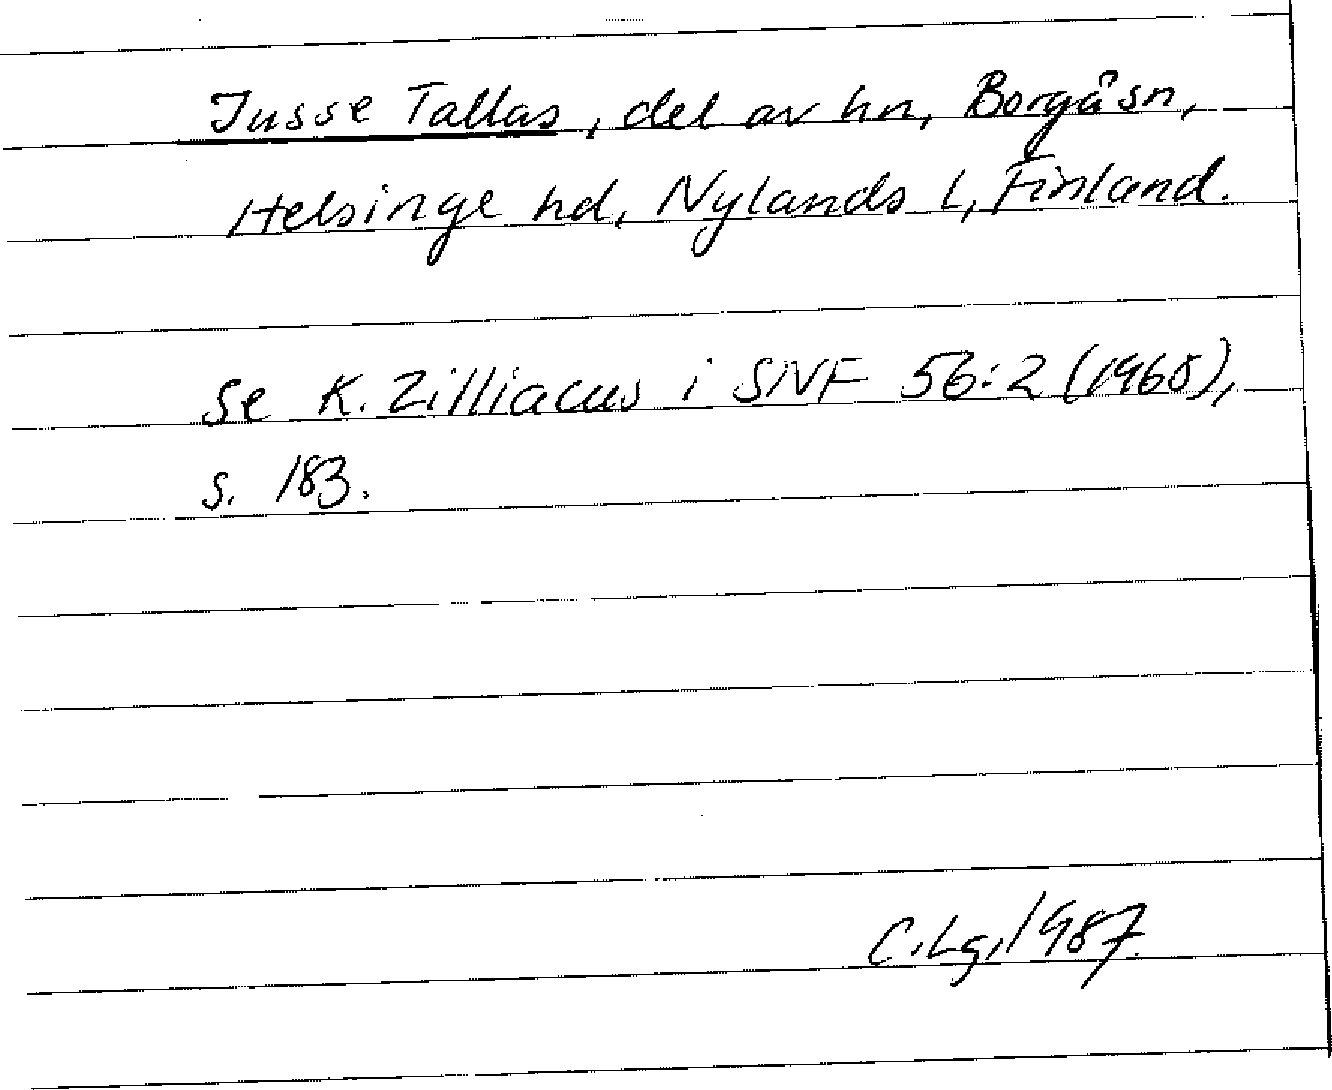 Jusse Tallas, del av hn, Borgå sn,
Helsinge hd, Nylands l, Finland.
Se K. Zilliacus i SNF 56:2 (1968),
s. 183.
C.Lg, 1987.